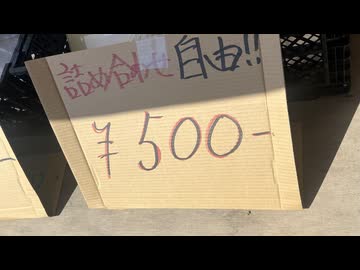 詰め合わせ自由!!
¥500-